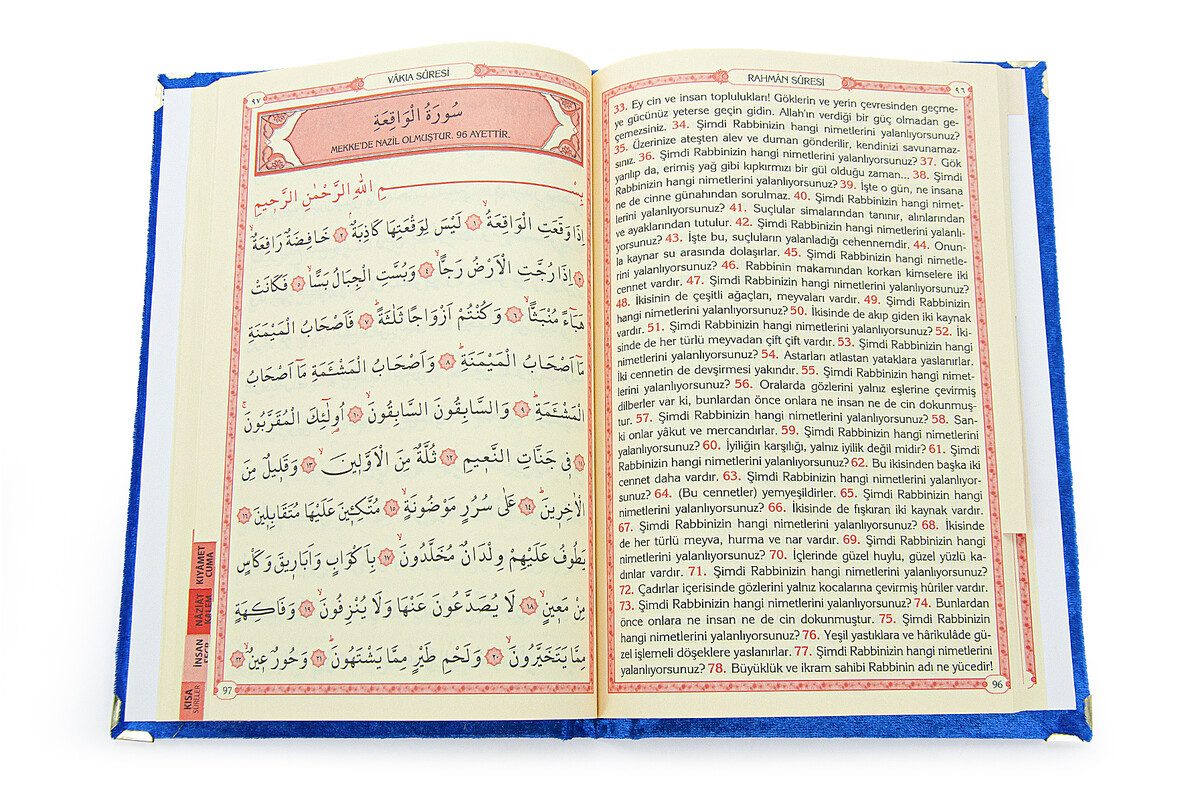 RAHMÂN SÛRESİ
٩٦
33. Ey cin ve insan toplulukları! Göklerin ve yerin çevresinden geçme-
ye gücünüz yeterse geçin gidin. Allah'ın verdiği bir güç olmadan ge-
çemezsiniz. 34. Şimdi Rabbinizin hangi nimetlerini yalanlıyorsunuz?
35. Üzerinize ateşten alev ve duman gönderilir, kendinizi savunamaz-
sınız. 36. Şimdi Rabbinizin hangi nimetlerini yalanlıyorsunuz? 37. Gök
yarılıp da, erimiş yağ gibi kıpkırmızı bir gül olduğu zaman... 38. Şimdi
Rabbinizin hangi nimetlerini yalanlıyorsunuz? 39. İşte o gün, ne insana
ne de cinne günahından sorulmaz. 40. Şimdi Rabbinizin hangi nimet-
lerini yalanlıyorsunuz? 41. Suçlular simalarından tanınır, alınlarından
ve ayaklarından tutulur. 42. Şimdi Rabbinizin hangi nimetlerini yalanlı-
yorsunuz? 43. İşte bu, suçluların yalanladığı cehennemdir. 44. Onun-
la kaynar su arasında dolaşırlar. 45. Şimdi Rabbinizin hangi nimetle-
rini yalanlıyorsunuz? 46. Rabbinin makamından korkan kimselere iki
cennet vardır. 47. Şimdi Rabbinizin hangi nimetlerini yalanlıyorsunuz?
48. İkisinin de çeşitli ağaçları, meyvaları vardır. 49. Şimdi Rabbinizin
hangi nimetlerini yalanlıyorsunuz? 50. İkisinde de akıp giden iki kaynak
vardır. 51. Şimdi Rabbinizin hangi nimetlerini yalanlıyorsunuz? 52. İki-
sinde de her türlü meyvadan çift çift vardır. 53. Şimdi Rabbinizin hangi
nimetlerini yalanlıyorsunuz? 54. Astarları atlastan yataklara yaslanırlar.
İki cennetin de devşirmesi yakındır. 55. Şimdi Rabbinizin hangi nimet-
lerini yalanlıyorsunuz? 56. Oralarda gözlerini yalnız eşlerine çevirmiş
dilberler var ki, bunlardan önce onlara ne insan ne de cin dokunmuş-
tur. 57. Şimdi Rabbinizin hangi nimetlerini yalanlıyorsunuz? 58. San-
ki onlar yâkut ve mercandırlar. 59. Şimdi Rabbinizin hangi nimetlerini
yalanlıyorsunuz? 60. İyiliğin karşılığı, yalnız iyilik değil midir? 61. Şimdi
Rabbinizin hangi nimetlerini yalanlıyorsunuz? 62. Bu ikisinden başka iki
cennet daha vardır. 63. Şimdi Rabbinizin hangi nimetlerini yalanlıyor-
sunuz? 64. (Bu cennetler) yemyeşildirler. 65. Şimdi Rabbinizin hangi
nimetlerini yalanlıyorsunuz? 66. İkisinde de fışkıran iki kaynak vardır.
67. Şimdi Rabbinizin hangi nimetlerini yalanlıyorsunuz? 68. İkisinde
de her türlü meyva, hurma ve nar vardır. 69. Şimdi Rabbinizin hangi
nimetlerini yalanlıyorsunuz? 70. İçlerinde güzel huylu, güzel yüzlü ka-
dınlar vardır. 71. Şimdi Rabbinizin hangi nimetlerini yalanlıyorsunuz?
72. Çadırlar içerisinde gözlerini yalnız kocalarına çevirmiş hûriler vardır.
73. Şimdi Rabbinizin hangi nimetlerini yalanlıyorsunuz? 74. Bunlardan
önce onlara ne insan ne de cin dokunmuştur. 75. Şimdi Rabbinizin
hangi nimetlerini yalanlıyorsunuz? 76. Yeşil yastıklara ve hârikulâde gü-
zel işlemeli döşeklere yaslanırlar. 77. Şimdi Rabbinizin hangi nimetlerini
yalanlıyorsunuz? 78. Büyüklük ve ikram sahibi Rabbinin adı ne yücedir!
96
VÂKIA SÛRESİ
٩٧
سُورَةُ الْوَاقِعَةِ
MEKKE'DE NAZİL OLMUŞTUR. 96 AYETTİR.
بِسْمِ اللهِ الرَّحْمٰنِ الرَّحِيمِ
اِذَا وَقَعَتِ الْوَاقِعَةُۙ ١ لَيْسَ لِوَقْعَتِهَا كَاذِبَةٌۢ ٢ خَافِضَةٌ رَافِعَةٌۙ
٣ اِذَا رُجَّتِ الْاَرْضُ رَجًّاۙ ٤ وَبُسَّتِ الْجِبَالُ بَسًّاۙ ٥ فَكَانَتْ
هَبَاءً مُنْبَثًّاۙ ٦ وَكُنْتُمْ اَزْوَاجًا ثَلٰثَةًۜ ٧ فَاَصْحَابُ الْمَيْمَنَةِ
مَا اَصْحَابُ الْمَيْمَنَةِۜ ٨ وَاَصْحَابُ الْمَشْـَٔمَةِ مَا اَصْحَابُ
الْمَشْـَٔمَةِۜ ٩ وَالسَّابِقُونَ السَّابِقُونَۙ ١٠ اُولٰٓئِكَ الْمُقَرَّبُونَۚ
١١ فِي جَنَّاتِ النَّعِيمِ ١٢ ثُلَّةٌ مِنَ الْاَوَّلِينَۙ ١٣ وَقَلِيلٌ مِنَ
الْاٰخِرِينَۜ ١٤ عَلٰى سُرُرٍ مَوْضُونَةٍۙ ١٥ مُتَّكِـِٔينَ عَلَيْهَا مُتَقَابِلِينَ ١٦
يَطُوفُ عَلَيْهِمْ وِلْدَانٌ مُخَلَّدُونَۙ ١٧ بِاَكْوَابٍ وَاَبَارِيقَ وَكَأْسٍ
مِنْ مَعِينٍۙ ١٨ لَا يُصَدَّعُونَ عَنْهَا وَلَا يُنْزِفُونَۙ ١٩ وَفَاكِهَةٍ
مِمَّا يَتَخَيَّرُونَۙ ٢٠ وَلَحْمِ طَيْرٍ مِمَّا يَشْتَهُونَۜ ٢١ وَحُورٌ عِينٌۙ ٢٢
97
KIYÂMET
CUMA
NÂZİÂT
KALEM
İNSAN
KISA
SÛRELER